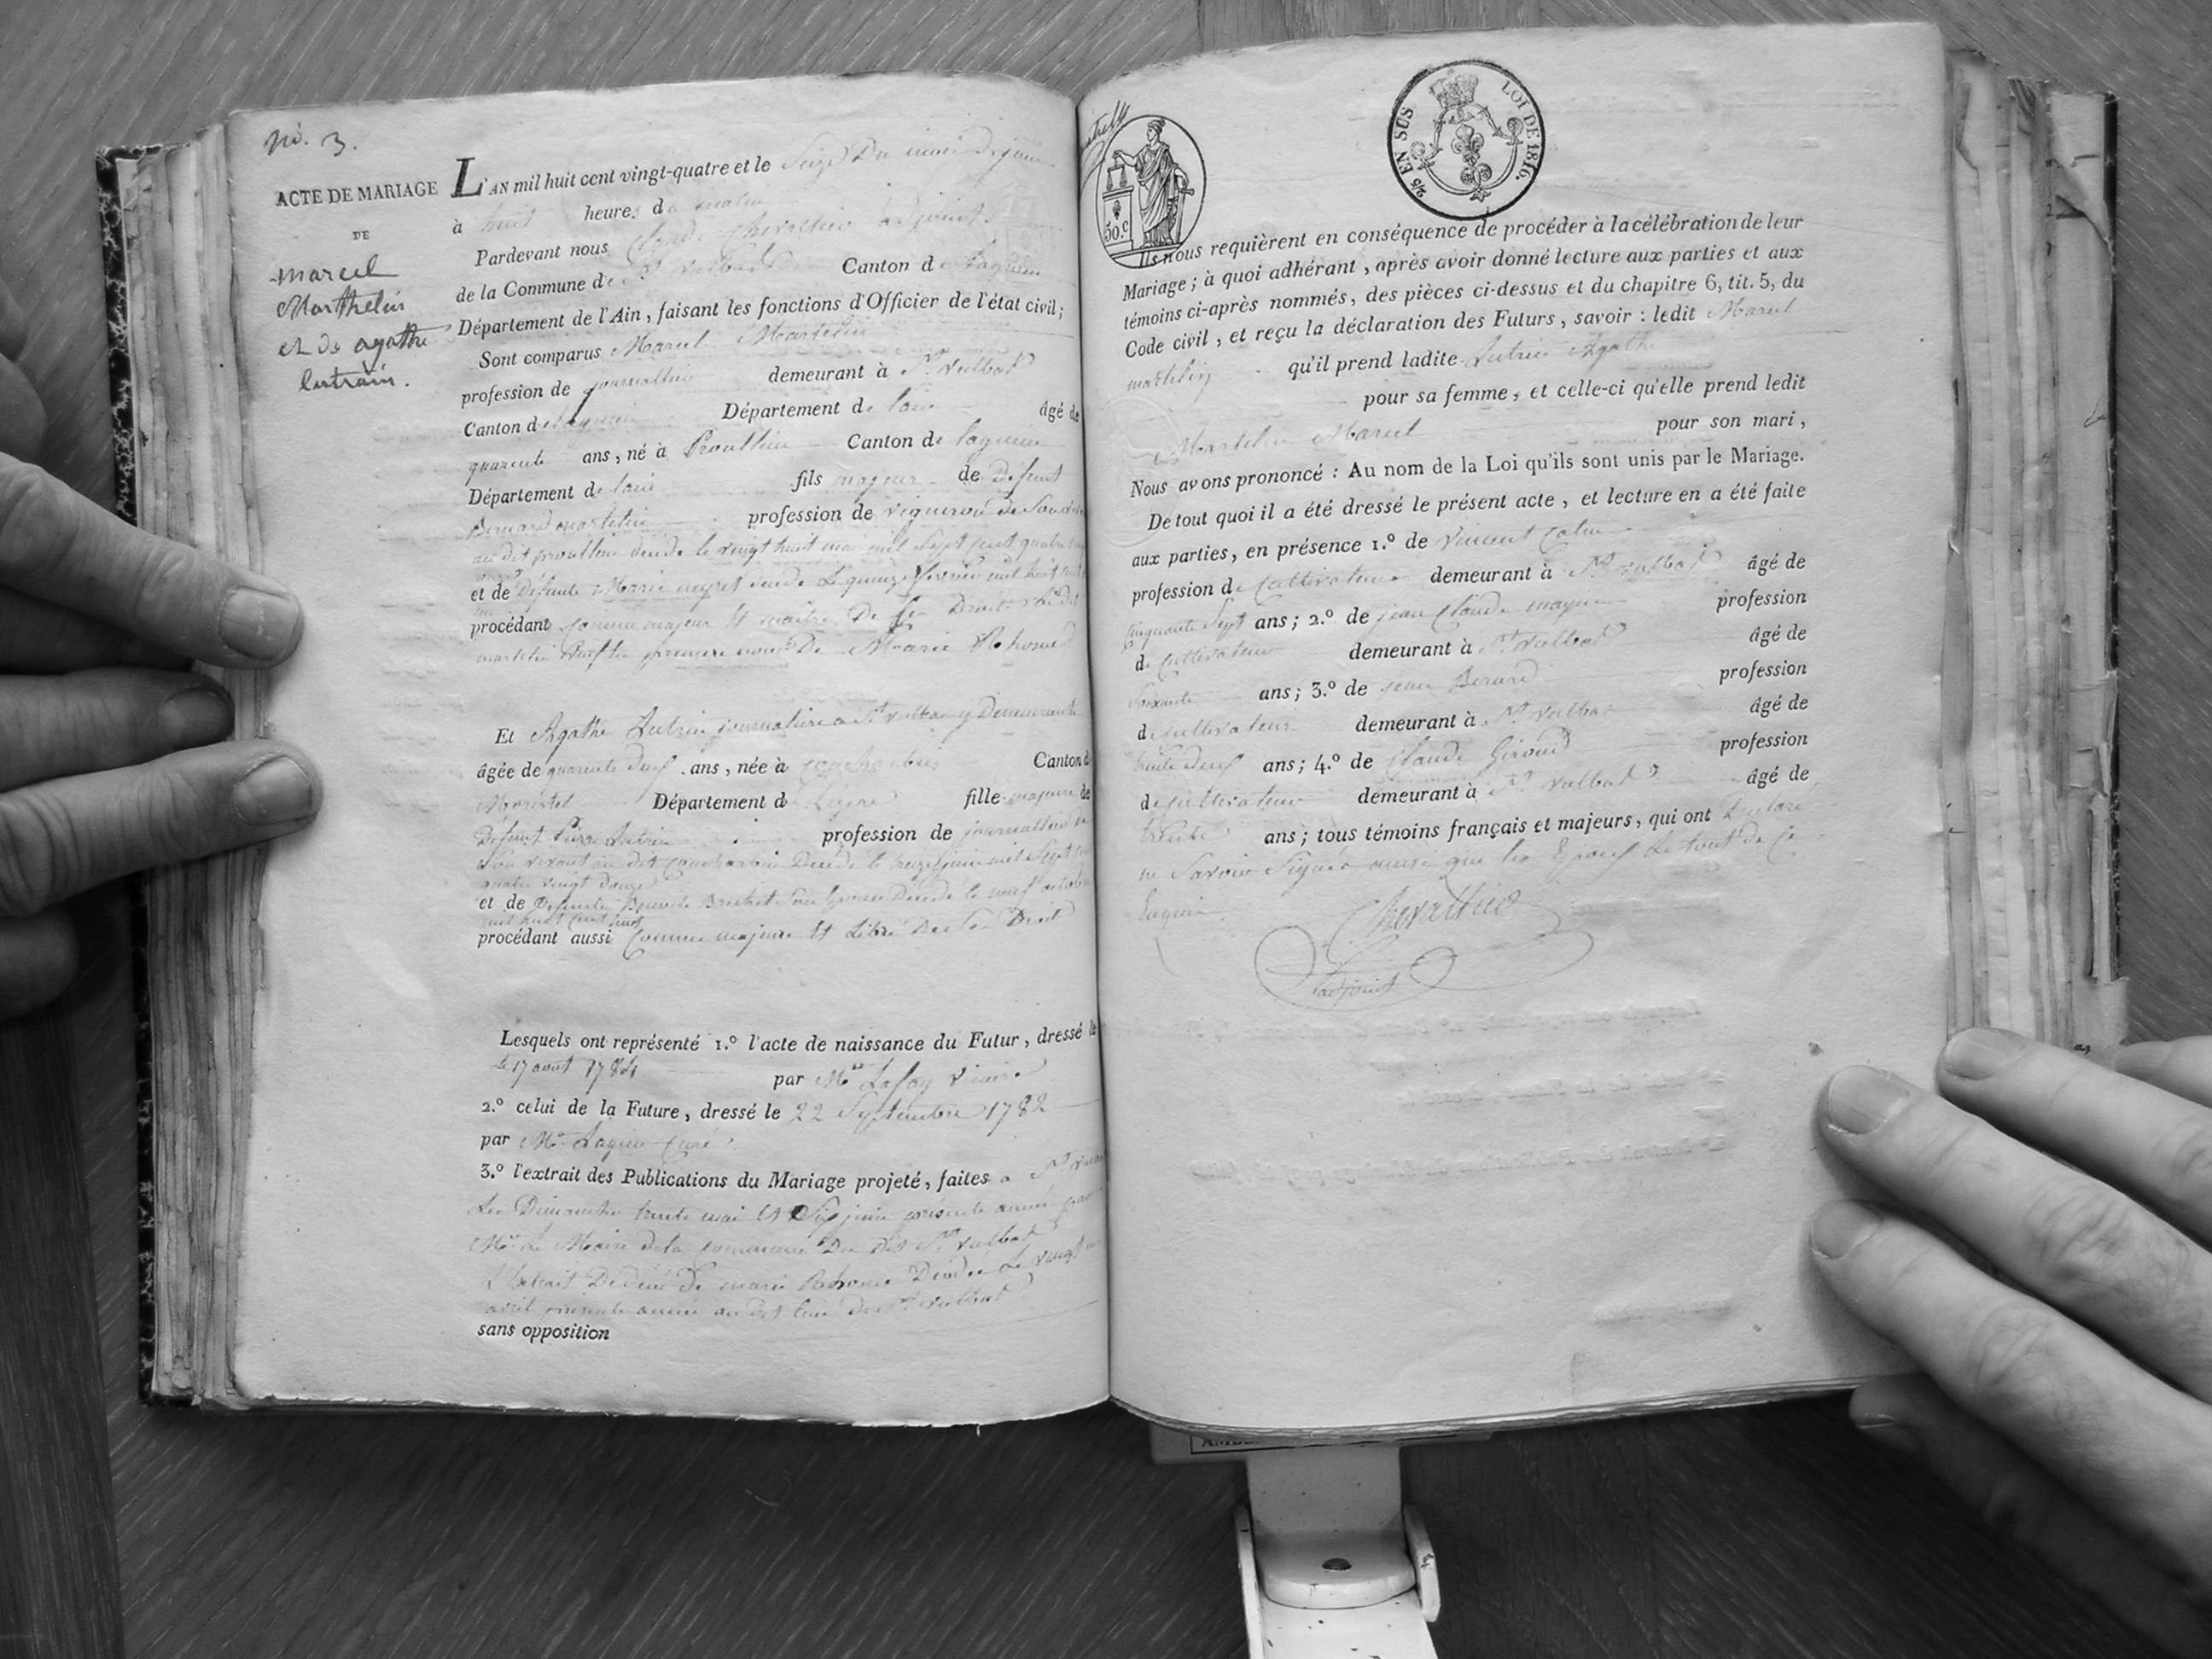 No. 3.
ACTE DE MARIAGE
DE
marcel
Marthelin
et de agathe
lutrain.
L'AN mil huit cent vingt-quatre et le Seize Du mois De juin
à huit heures du matin
Pardevant nous Claude Chevallier adjoint
de la Commune de St Vulbas Canton de Lagnieu
Département de l'Ain, faisant les fonctions d'Officier de l'état civil;
Sont comparus Marcel Martelin
profession de journallier demeurant à St Vulbas
Canton de Lagnieu Département de l'ain âgé de
quarente ans, né à Proullieu Canton de lagnieu
Département de l'ain fils majeur de Defunt
Bernard martelin profession de vigneron de Son vivant
au dit proullieu décédé le vingt huit mai mil Sept cent quatre
et de Défunte Marie décédé Le quinze février mil huit cent
procédant comme majeur et maitre De Ses Droits Le dit
martelin veuf en premiere noces De Marie
Et Agathe Lutrin journaliere a St vulbas y Demeurante
âgée de quarente deux ans, née à Canton de
Morestel Département de Lizere fille majeure de
Défunt Pierre Lutrin profession de journallier
Son vivant au dit Décédé le treize juin mil Sept cent
quatre vingt douze
et de Defunte Benoite Son Epouse Décédé le neuf octobre
mil huit cent huit
procédant aussi Comme majeure et Libre De Ses Droit
Lesquels ont représenté 1.º l'acte de naissance du Futur, dressé le
le 17 aout 1784 par Mre Lafay Vicaire
2.º celui de la Future, dressé le 22 Septembre 1782
par Mr Lagier Curé
3.º l'extrait des Publications du Mariage projeté, faites a St Vulbas
Les Dimanches trente mai et Six juin presente année par
Mr Le Maire de la commune Du Dit St Vulbas
L'Extrait De décé De marie Décédee Le vingt
avril presente année au dit lieu de St Vulbas
sans opposition
30.c
2/5 EN SUS
LOI DE 1816.
Ils nous requièrent en conséquence de procéder à la célébration de leur
Mariage; à quoi adhérant, après avoir donné lecture aux parties et aux
témoins ci-après nommés, des pièces ci-dessus et du chapitre 6, tit. 5, du
Code civil, et reçu la déclaration des Futurs, savoir: ledit Marcel
martelin qu'il prend ladite Lutrin Agathe
pour sa femme, et celle-ci qu'elle prend ledit
Martelin Marcel pour son mari,
Nous avons prononcé: Au nom de la Loi qu'ils sont unis par le Mariage.
De tout quoi il a été dressé le présent acte, et lecture en a été faite
aux parties, en présence 1.º de Vincent
profession de Cultivateur demeurant à St vulbas âgé de
cinquante Sept ans; 2.º de jean Claude profession
de Cultivateur demeurant à St Vulbas âgé de
Soixante ans; 3.º de jean Berard profession
de cultivateur demeurant à St Vulbas âgé de
trente deux ans; 4.º de Claude Giroud profession
de cultivateur demeurant à St Vulbas âgé de
trente ans; tous témoins français et majeurs, qui ont Déclaré
ne Savoir Signer ainsi que les Epoux Le tout De Ce
Enquis
Chevallier
adjoint